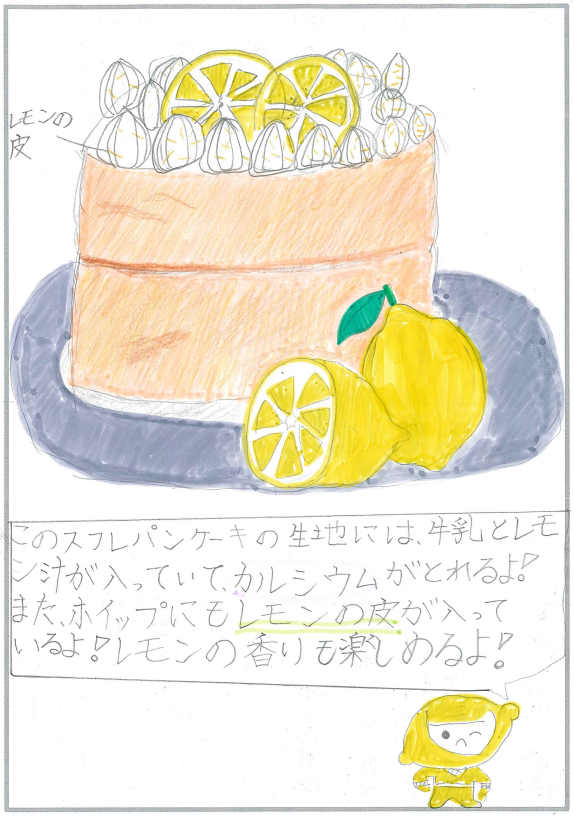 レモンの
皮
このスフレパンケーキの生地には、牛乳とレモ
ン汁が入っていて、カルシウムがとれるよ!
また、ホイップにもレモンの皮が入って
いるよ!レモンの香りも楽しめるよ!